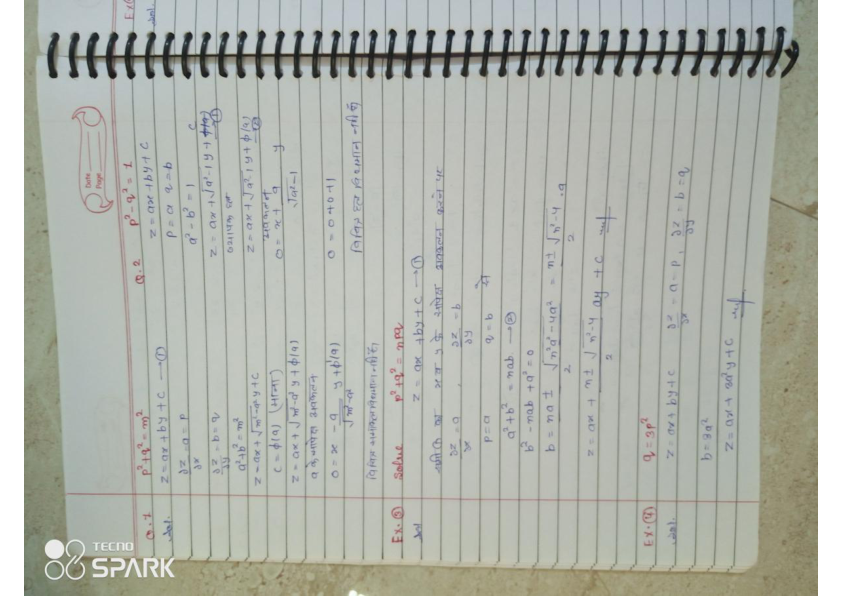 Date
Page
Q.1 p²+q²=m²
Sol. z=ax+by+c →①
∂z/∂x = a = p
∂z/∂y = b = q
a²+b²=m²
z=ax+√m²-a² y+c
c=ϕ(a) (माना)
z=ax+√m²-a² y+ϕ(a)
a के सापेक्ष अवकलन
0=x - a/√m²-a² y+ϕ'(a)
Q.2 p²-q²=1
z=ax+by+c
p=a q=b
a²-b²=1
z=ax+√a²-1 y+ϕ(a) →①
व्यापक हल
z=ax+√a²-1 y+ϕ(a) →②
अवकलन
0=x+ a/√a²-1 y
0=0+0+1
विचित्र हल विद्यमान नहीं है
Ex.③ Solve p²+q²=npq
Sol z=ax+by+c →①
∂z/∂x = a , ∂z/∂y = b
p=a q=b से
a²+b²=nab →②
b²-nab+a²=0
b= na ± √n²a²-4a² / 2 = n± √n²-4 / 2 .a
z=ax+ n± √n²-4 / 2 ay+c
Ex.④ q=3p²
Sol. z=ax+by+c ∂z/∂x = a=p, ∂z/∂y = b=q
b=3a²
z=ax+3a²y+c
TECNO
SPARK